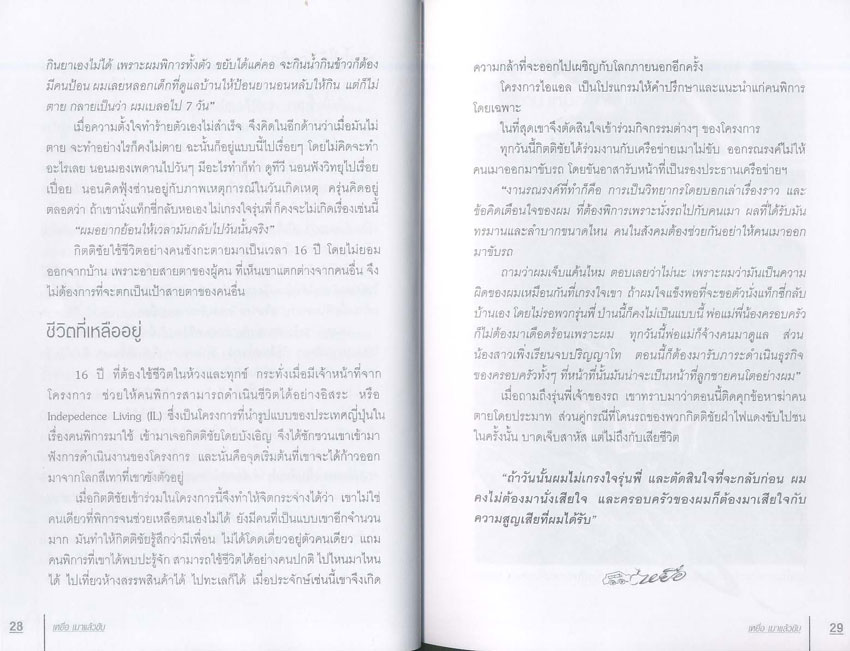 กินยาเองไม่ได้ เพราะผมพิการทั้งตัว ขยับได้แค่คอ จะกินน้ำกินข้าวก็ต้อง
มีคนป้อน ผมเลยหลอกเด็กที่ดูแลบ้านให้ป้อนยานอนหลับให้กิน แต่ก็ไม่
ตาย กลายเป็นว่า ผมเบลอไป 7 วัน”
เมื่อความตั้งใจทำร้ายตัวเองไม่สำเร็จ จึงคิดในอีกด้านว่าเมื่อมันไม่
ตาย จะทำอย่างไรก็คงไม่ตาย ฉะนั้นก็อยู่แบบนี้ไปเรื่อยๆ โดยไม่คิดจะทำ
อะไรเลย นอนมองเพดานไปวันๆ มีอะไรทำก็ทำ ดูทีวี นอนฟังวิทยุไปเรื่อย
เปื่อย นอนคิดฟุ้งซ่านอยู่กับภาพเหตุการณ์ในวันเกิดเหตุ ครุ่นคิดอยู่
ตลอดว่า ถ้าเขานั่งแท็กซี่กลับหอเอง ไม่เกรงใจรุ่นพี่ ก็คงจะไม่เกิดเรื่องเช่นนี้
“ผมอยากย้อนให้เวลามันกลับไปวันนั้นจริง”
กิตติชัยใช้ชีวิตอย่างคนซังกะตายมาเป็นเวลา 16 ปี โดยไม่ยอม
ออกจากบ้าน เพราะอายสายตาของผู้คน ที่เห็นเขาแตกต่างจากคนอื่น จึง
ไม่ต้องการที่จะตกเป็นเป้าสายตาของคนอื่น
ชีวิตที่เหลืออยู่
16 ปี ที่ต้องใช้ชีวิตในห้วงและทุกข์ กระทั่งเมื่อมีเจ้าหน้าที่จาก
โครงการ ช่วยให้คนพิการสามารถดำเนินชีวิตได้อย่างอิสระ หรือ
Indepedence Living (IL) ซึ่งเป็นโครงการที่นำรูปแบบของประเทศญี่ปุ่นใน
เรื่องคนพิการมาใช้ เข้ามาเจอกิตติชัยโดยบังเอิญ จึงได้ชักชวนเขาเข้ามา
ฟังการดำเนินงานของโครงการ และนั่นคือจุดเริ่มต้นที่เขาจะได้ก้าวออก
มาจากโลกสีเทาที่เขาขังตัวอยู่
เมื่อกิตติชัยเข้าร่วมในโครงการนี้จึงทำให้จิตกระจ่างได้ว่า เขาไม่ใช่
คนเดียวที่พิการจนช่วยเหลือตนเองไม่ได้ ยังมีคนที่เป็นแบบเขาอีกจำนวน
มาก มันทำให้กิตติชัยรู้สึกว่ามีเพื่อน ไม่ได้โดดเดี่ยวอยู่ตัวคนเดียว แถม
คนพิการที่เขาได้พบปะรู้จัก สามารถใช้ชีวิตได้อย่างคนปกติ ไปไหนมาไหน
ได้ ไปเที่ยวห้างสรรพสินค้าได้ ไปทะเลก็ได้ เมื่อประจักษ์เช่นนี้เขาจึงเกิด
28 เหยื่อ เมาแล้วขับ
ความกล้าที่จะออกไปเผชิญกับโลกภายนอกอีกครั้ง
โครงการไอแอล เป็นโปรแกรมให้คำปรึกษาและแนะนำแก่คนพิการ
โดยเฉพาะ
ในที่สุดเขาจึงตัดสินใจเข้าร่วมกิจกรรมต่างๆ ของโครงการ
ทุกวันนี้กิตติชัยได้ร่วมงานกับเครือข่ายเมาไม่ขับ ออกรณรงค์ไม่ให้
คนเมาออกมาขับรถ โดยขันอาสารับหน้าที่เป็นรองประธานเครือข่ายฯ
“งานรณรงค์ที่ทำก็คือ การเป็นวิทยากรโดยบอกเล่าเรื่องราว และ
ข้อคิดเตือนใจของผม ที่ต้องพิการเพราะนั่งรถไปกับคนเมา ผลที่ได้รับมัน
ทรมานและลำบากขนาดไหน คนในสังคมต้องช่วยกันอย่าให้คนเมาออก
มาขับรถ
ถามว่าผมเจ็บแค้นไหม ตอบเลยว่าไม่นะ เพราะผมว่ามันเป็นความ
ผิดของผมเหมือนกันที่เกรงใจเขา ถ้าผมใจแข็งพอที่จะขอตัวนั่งแท็กซี่กลับ
บ้านเอง โดยไม่รอพวกรุ่นพี่ ป่านนี้ก็คงไม่เป็นแบบนี้ พ่อแม่พี่น้องครอบครัว
ก็ไม่ต้องมาเดือดร้อนเพราะผม ทุกวันนี้พ่อแม่ก็จ้างคนมาดูแล ส่วน
น้องสาวเพิ่งเรียนจบปริญญาโท ตอนนี้ก็ต้องมารับภาระดำเนินธุรกิจ
ของครอบครัวทั้งๆ ที่หน้าที่นั้นมันน่าจะเป็นหน้าที่ลูกชายคนโตอย่างผม”
เมื่อถามถึงรุ่นพี่เจ้าของรถ เขาทราบมาว่าตอนนี้ติดคุกข้อหาฆ่าคน
ตายโดยประมาท ส่วนคู่กรณีที่โดนรถของพวกกิตติชัยฝ่าไฟแดงขับไปชน
ในครั้งนั้น บาดเจ็บสาหัส แต่ไม่ถึงกับเสียชีวิต
“ถ้าวันนั้นผมไม่เกรงใจรุ่นพี่ และตัดสินใจที่จะกลับก่อน ผม
คงไม่ต้องมานั่งเสียใจ และครอบครัวของผมก็ต้องมาเสียใจกับ
ความสูญเสียที่ผมได้รับ”
เหยื่อ
เหยื่อ เมาแล้วขับ 29